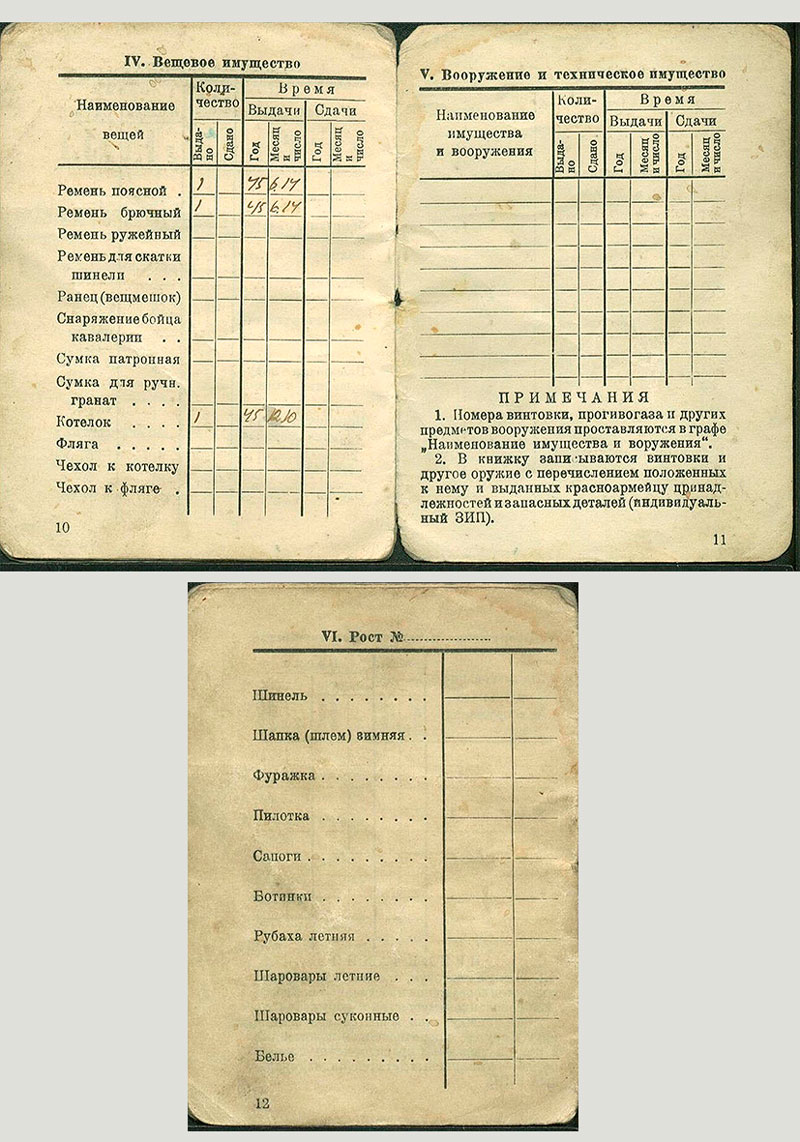 IV. Вещевое имущество
Наименование вещей
Количество
Время
Выдачи
Сдачи
Выдано
Сдано
Год
Месяц и число
Год
Месяц и число
Ремень поясной . 1 45 6.14
Ремень брючный 1 45 6.14
Ремень ружейный
Ремень для скатки
шинели . . .
Ранец (вещмешок)
Снаряжение бойца
кавалерии . .
Сумка патронная
Сумка для ручн.
гранат . . . .
Котелок . . . . 1 45
Фляга . . . . .
Чехол к котелку
Чехол к фляге .
10
V. Вооружение и техническое имущество
Наименование
имущества
и вооружения
Коли-
чество
Время
Выдачи
Сдачи
Выда-
но
Сдано
Год
Месяц
и число
Год
Месяц
и число
ПРИМЕЧАНИЯ
1. Номера винтовки, противогаза и других
предметов вооружения проставляются в графе
„Наименование имущества и воружения“.
2. В книжку записываются винтовки и
другое оружие с перечислением положенных
к нему и выданных красноармейцу принад-
лежностей и запасных деталей (индивидуаль-
ный ЗИП).
11
VI. Рост №....................
Шинель . . . . . . . .
Шапка (шлем) зимняя . .
Фуражка . . . . . . . .
Пилотка . . . . . . . .
Сапоги . . . . . . . . .
Ботинки . . . . . . . .
Рубаха летняя . . . . .
Шаровары летние . . .
Шаровары суконные . .
Белье . . . . . . . . .
12